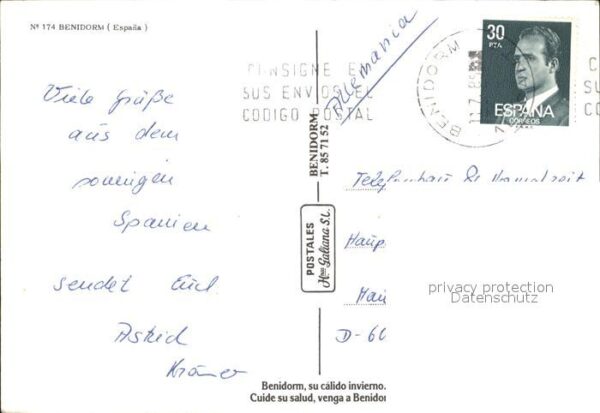 Nº 174 BENIDORM ( España )
Viele Grüße
aus dem
sonnigen
Spanien
sendet Euch
Astrid
Krämer
Allemania
CONSIGNE E
SUS ENVIOS EL
CODIGO POSTAL
BENIDORM
30
PTA
ESPAÑA
CORREOS
BENIDORM
T. 85 71 52
POSTALES
Hnos Galiana S.L.
Haup
D-60
privacy protection
Datenschutz
Benidorm, su cálido invierno.
Cuide su salud, venga a Benidor